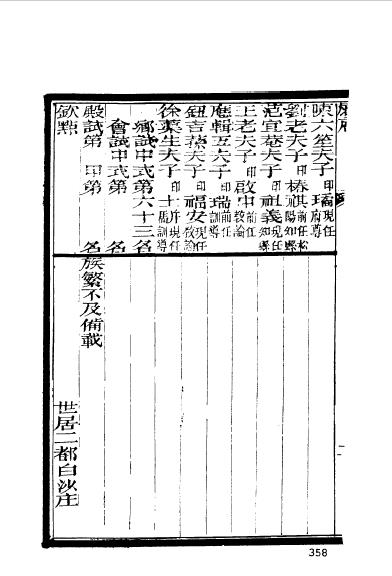 六笙夫子 印璚 現任府尊
劉老夫子 印椿祺 前任松陽知縣
范宣菴夫子 印祖義 現任知縣
王老夫子 印啟中 前任教諭
應輯五夫子 印瑞 前任訓導
鈕吉蓀夫子 印福安 現任教諭
徐葉生夫子 印士 現任訓導
鄉試中式第六十三名
會試中式第 名
殿試第 甲第 名
欽點
族繁不及備載
世居二都白沙庄
358